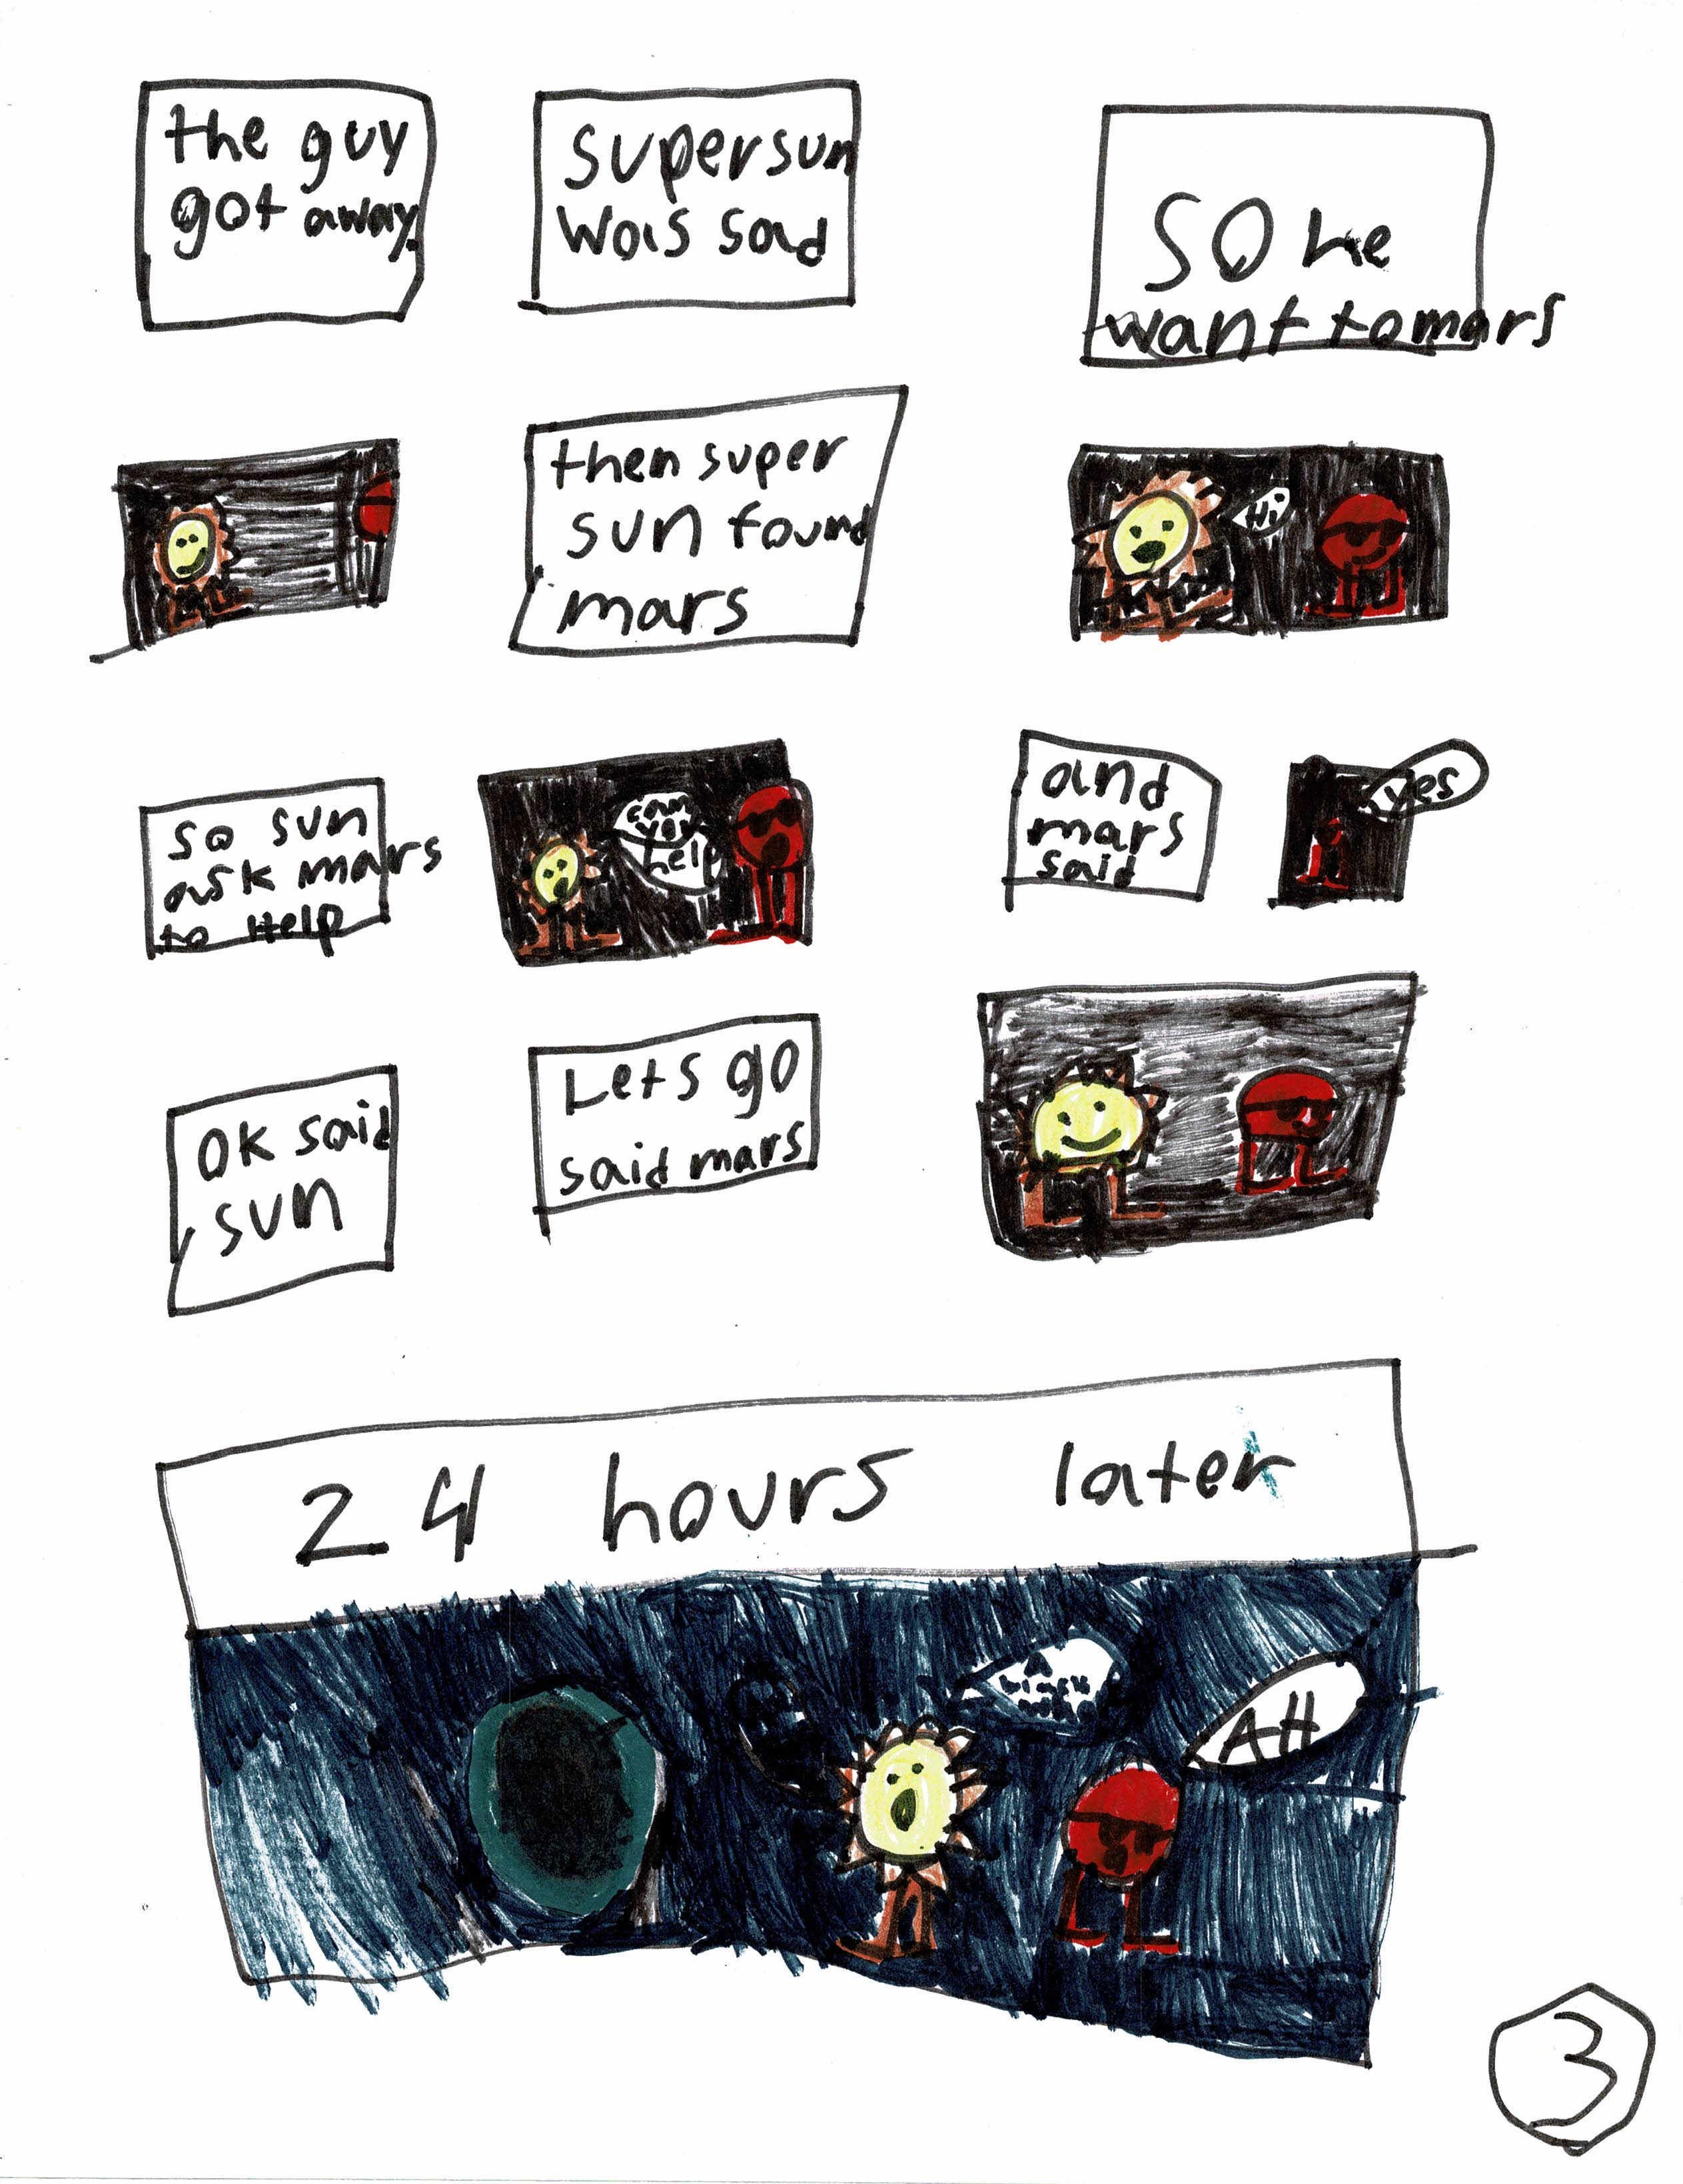 the guy
got away.
supersun
was sad
so he
want to mars
then super
sun found
mars
Hi
so sun
ask mars
to Help
can
you
help
and
mars
said
yes
OK said
sun
Lets go
said mars
24 hours later
A
black
AH
3